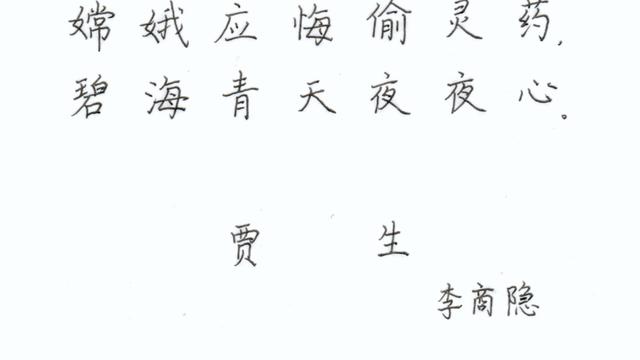 嫦娥应悔偷灵药,
碧海青天夜夜心。
贾生
李商隐